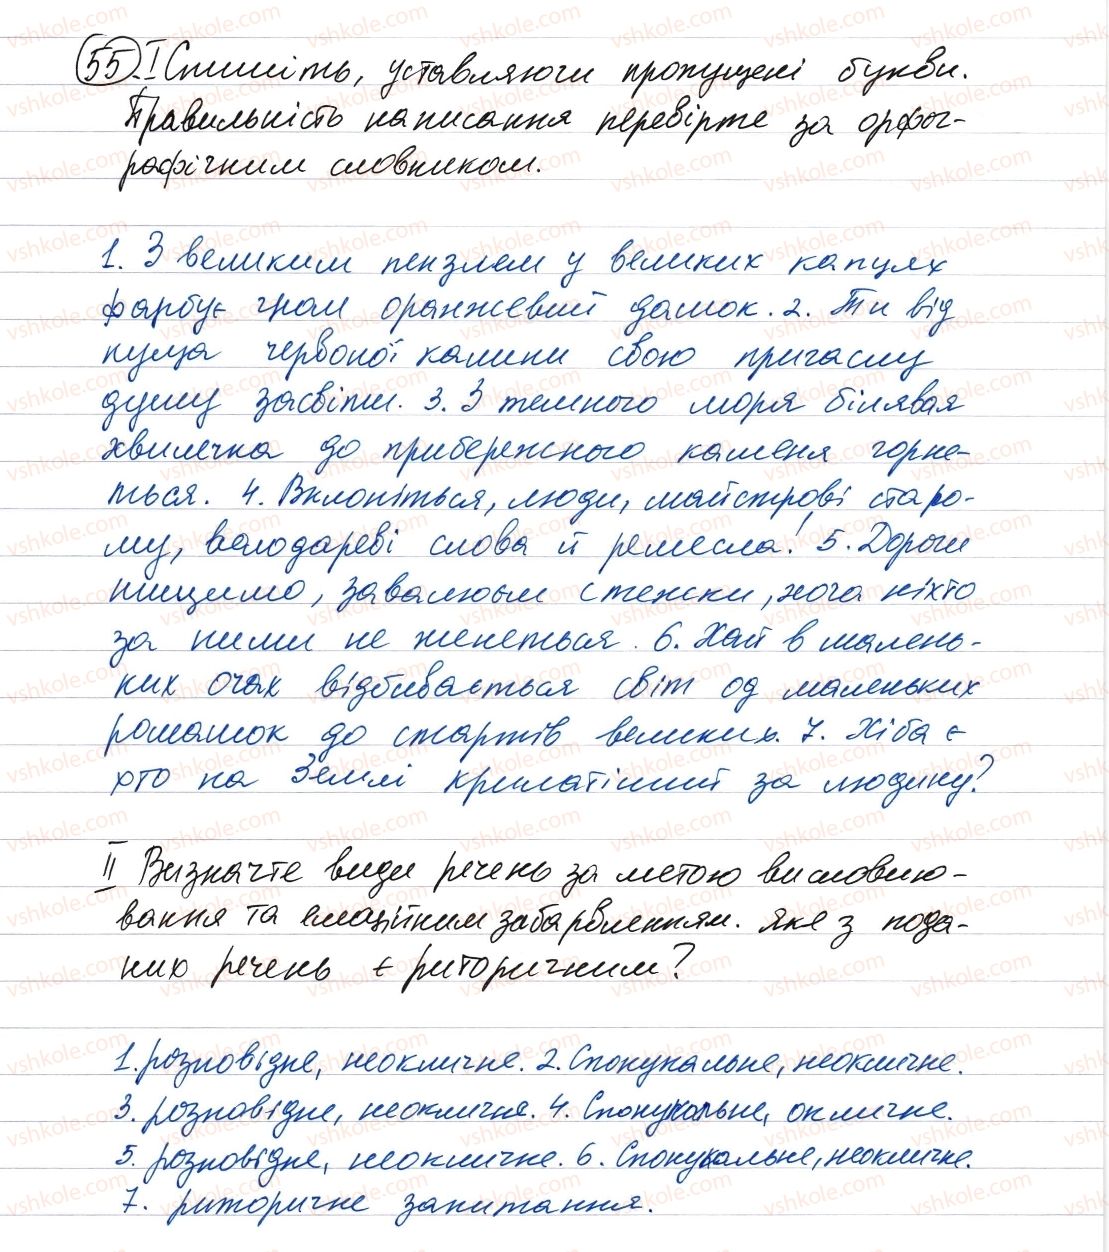 55. I Спишіть, уставляючи пропущені букви.
Правильність написання перевірте за орфог-
рафічним словником.
1. З великим пензлем у великих капцях
фарбує гном оранжевий домок. 2. Ти від
пуща червоної калини свою пригаслу
душу засвіти. 3. З темного моря білявая
хвилечка до прибережного каменя горне-
ться. 4. Вклоніться, люди, майстрові старо-
му, володареві слова й ремесла! 5. Дороги
нищимо, завалюєм стежки, хоча ніхто
за ними не женеться. 6. Хай в малень-
ких очах відбивається світ од маленьких
ромашок до стартів великих. 7. Хіба є
хто на Землі крилатіший за людину?
II Визначте види речень за метою висловлю-
вання та емоційним забарвленням. Яке з пода-
них речень є риторичним?
1. розповідне, неокличне. 2. Спонукальне, неокличне.
3. розповідне, неокличне. 4. Спонукальне, окличне.
5. розповідне, неокличне. 6. Спонукальне, неокличне.
7. риторичне запитання.